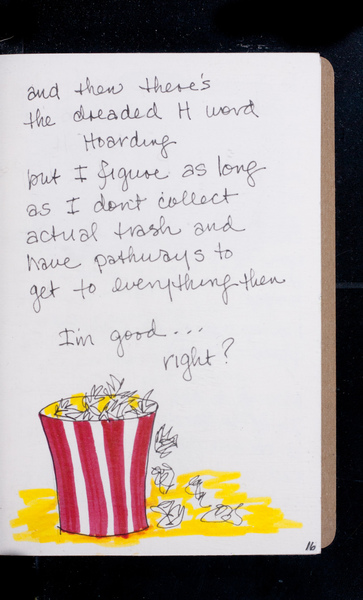 and then there's
the dreaded H word
Hoarding
but I figure as long
as I don't collect
actual trash and
have pathways to
get to everything then
I'm good...
right?
16